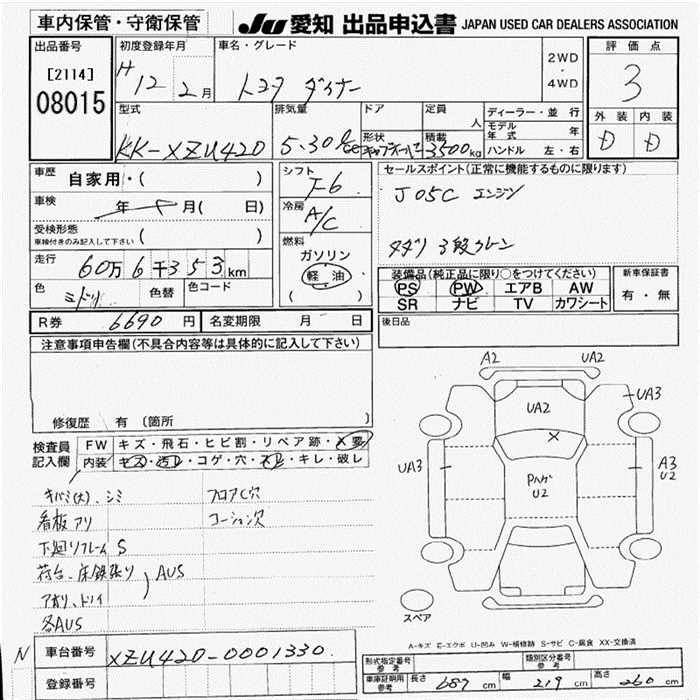 車内保管・守衛保管
JU 愛知 出品申込書 JAPAN USED CAR DEALERS ASSOCIATION
出品番号
[2114]
08015
初度登録年月
H 12 2月
車名・グレード
トヨタ ダイナー
2WD
・
4WD
評価点
3
外装 内装
D D
型式
KK-XZU420
排気量
5.30
ドア
形状
定員
人
積載
3500kg
ディーラー・並行
モデル年式 年
ハンドル 左・右
車歴 自家用・( )
車検 年 月( 日)
受検形態
車検付きのみ記入して下さい ( )
走行 60万6千353km
色 ミドリ 色替 色コード
シフト
F6
冷房
A/C
燃料
ガソリン
軽油
( )
セールスポイント(正常に機能するものに限ります)
J05C エンジン
タダノ 3段クレーン
装備品(純正品に限り○をつけてください)
PS PW エアB AW
SR ナビ TV カワシート
新車保証書
有・無
R券 6690円 名変期限 月 日
後日品
注意事項申告欄(不具合内容等は具体的に記入して下さい)
修復歴 有 〔箇所 〕
検査員記入欄
FW キズ・飛石・ヒビ割・リペア跡・X要
内装 キズ・汚レ・コゲ・穴・スレ・キレ・破レ
キバミ(大)、シミ
フロアC穴
看板アリ
コーション欠
下廻リフレーム S
荷台、床鉄張リ
アオリ、トリイ
AUS
各AUS
A2 UA2
UA2
UA3
X
UA3
A3
U2
U2
スペア
A-キズ E-エクボ U-凹み W-補修跡 S-サビ C-腐食 XX-交換済
N
車台番号 XZU420-0001330
登録番号
形式指定番号
参考
類別区分番号
参考
車庫証明用
参考
長さ 687cm 幅 219cm 高さ 260cm